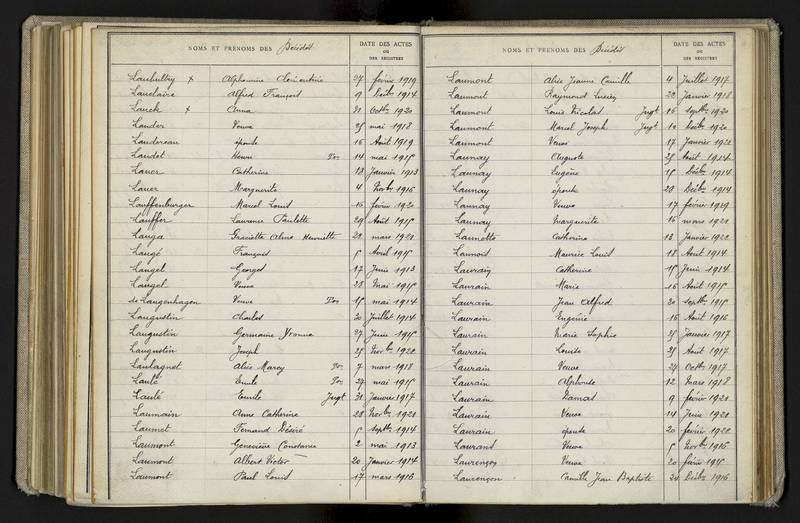 NOMS ET PRENOMS DES Décédés
DATE DES ACTES
OU
DES REGISTRES
Laubultry x Alphonsine Clémentine 27 février 1919
Lauclaire Alfred François 9 Décb. 1914
Lauck x Anna 21 Octb. 1920
Lauder Veuve 25 mai 1918
Laudereau épouse 16 Août 1919
Laudet Henri Von 14 mai 1915
Lauer Catherine 13 Janvier 1913
Lauer Marguerite 4 Novb. 1916
Lauffenburger Marcel Louis 16 févrer 1920
Lauffer Laurence Paulette 29 Août 1915
Lauga Graciette Alma Henriette 22 mars 1921
Laugé François 5 Avril 1915
Laugel Georges 17 Juin 1913
Laugel Veuve 28 Mai 1915
de Laugenhagen Veuve Von 15 mai 1914
Laugustin Charles 20 Juillet 1914
Laugustin Germaine Yvonne 27 Juin 1915
Laugustin Joseph 25 Novb. 1922
Laulagnet Alice Marcy Von 7 mars 1918
Laulé Emile Von 27 mai 1915
Laulé Emile Jugt 31 Janvier 1917
Laumain Anne Catherine 28 Novb. 1921
Laumet Fernand Désiré 5 Septb. 1914
Laumont Geneviève Constance 2 mai 1913
Laumont Albert Victor 20 Janvier 1914
Laumont Paul Louis 17 mars 1916
NOMS ET PRENOMS DES Décédés
DATE DES ACTES
OU
DES REGISTRES
Laumont Alice Jeanne Camille 4 Juillet 1917
Laumont Raymond Lucien 22 Janvier 1918
Laumont Louis Nicolas Jugt 16 Septb. 1920
Laumont Marcel Joseph Jugt 10 Décb. 1920
Laumont Veuve 17 Janvier 1922
Launay Auguste 25 Août 1914
Launay Eugène 15 Décb. 1914
Launay épouse 29 Décb. 1914
Launay Veuve 17 février 1920
Launay Marguerite 16 mars 1921
Launette Catherine 13 Janvier 1922
Launois Maurice Louis 18 Août 1914
Laurain Catherine 15 Juin 1914
Laurain Marie 16 Août 1915
Laurain Jean Alfred 20 Septb. 1915
Laurain Eugénie 16 Août 1916
Laurain Marie Sophie 25 Janvier 1917
Laurain Louise 25 Août 1917
Laurain Veuve 29 Octb. 1917
Laurain Alphonse 12 Mars 1918
Laurain Damas 9 février 1921
Laurain Veuve 14 Juin 1921
Laurain épouse 20 février 1922
Laurand Veuve 5 Novb. 1916
Laurençon Veuve 20 février 1915
Laurençon Camille Jean Baptiste 26 Décb. 1916